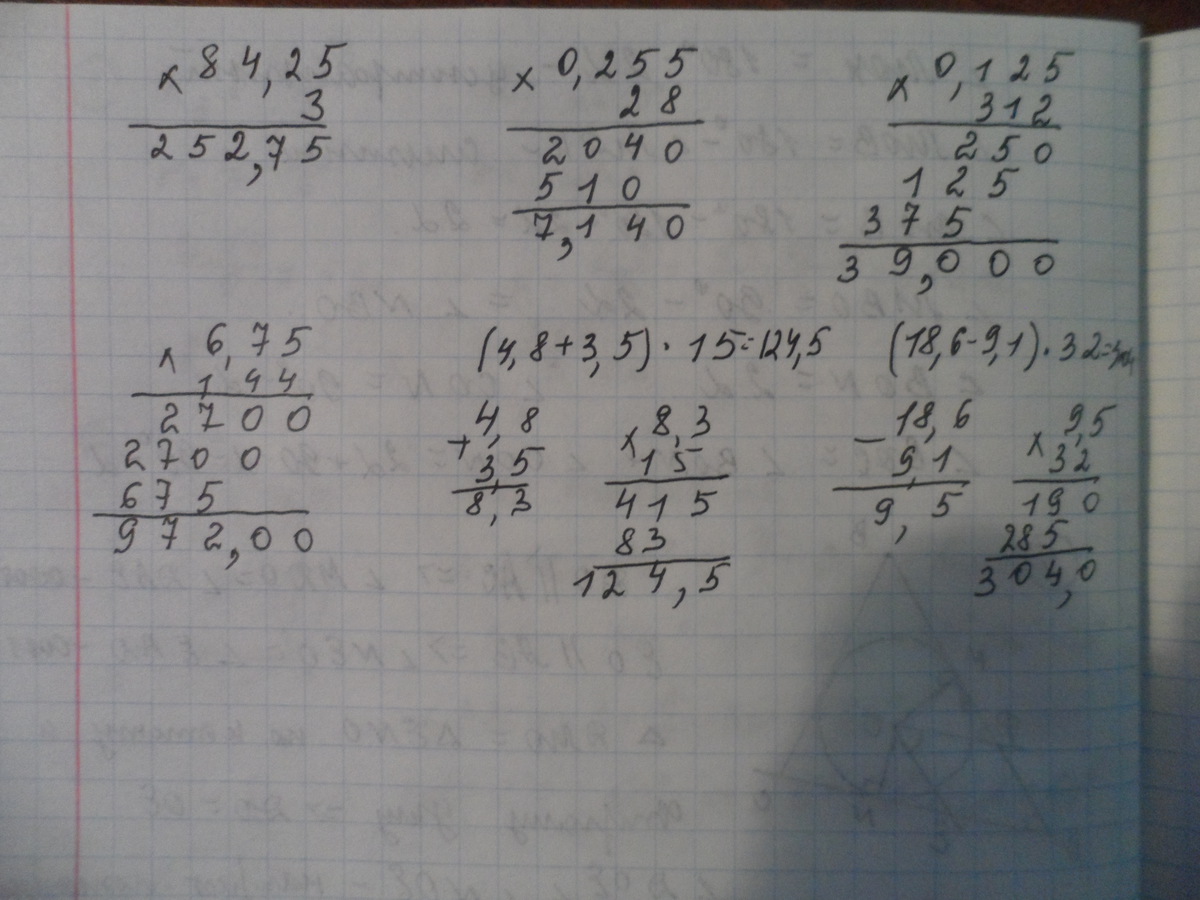 × 84,25
3
252,75
× 0,255
28
2040
510
7,140
× 0,125
312
250
125
375
39,000
× 6,75
144
2700
2700
675
972,00
(4,8+3,5)·15=124,5
+ 4,8
3,5
8,3
× 8,3
15
415
83
124,5
(18,6-9,1)·32=304
- 18,6
9,1
9,5
× 9,5
32
190
285
304,0